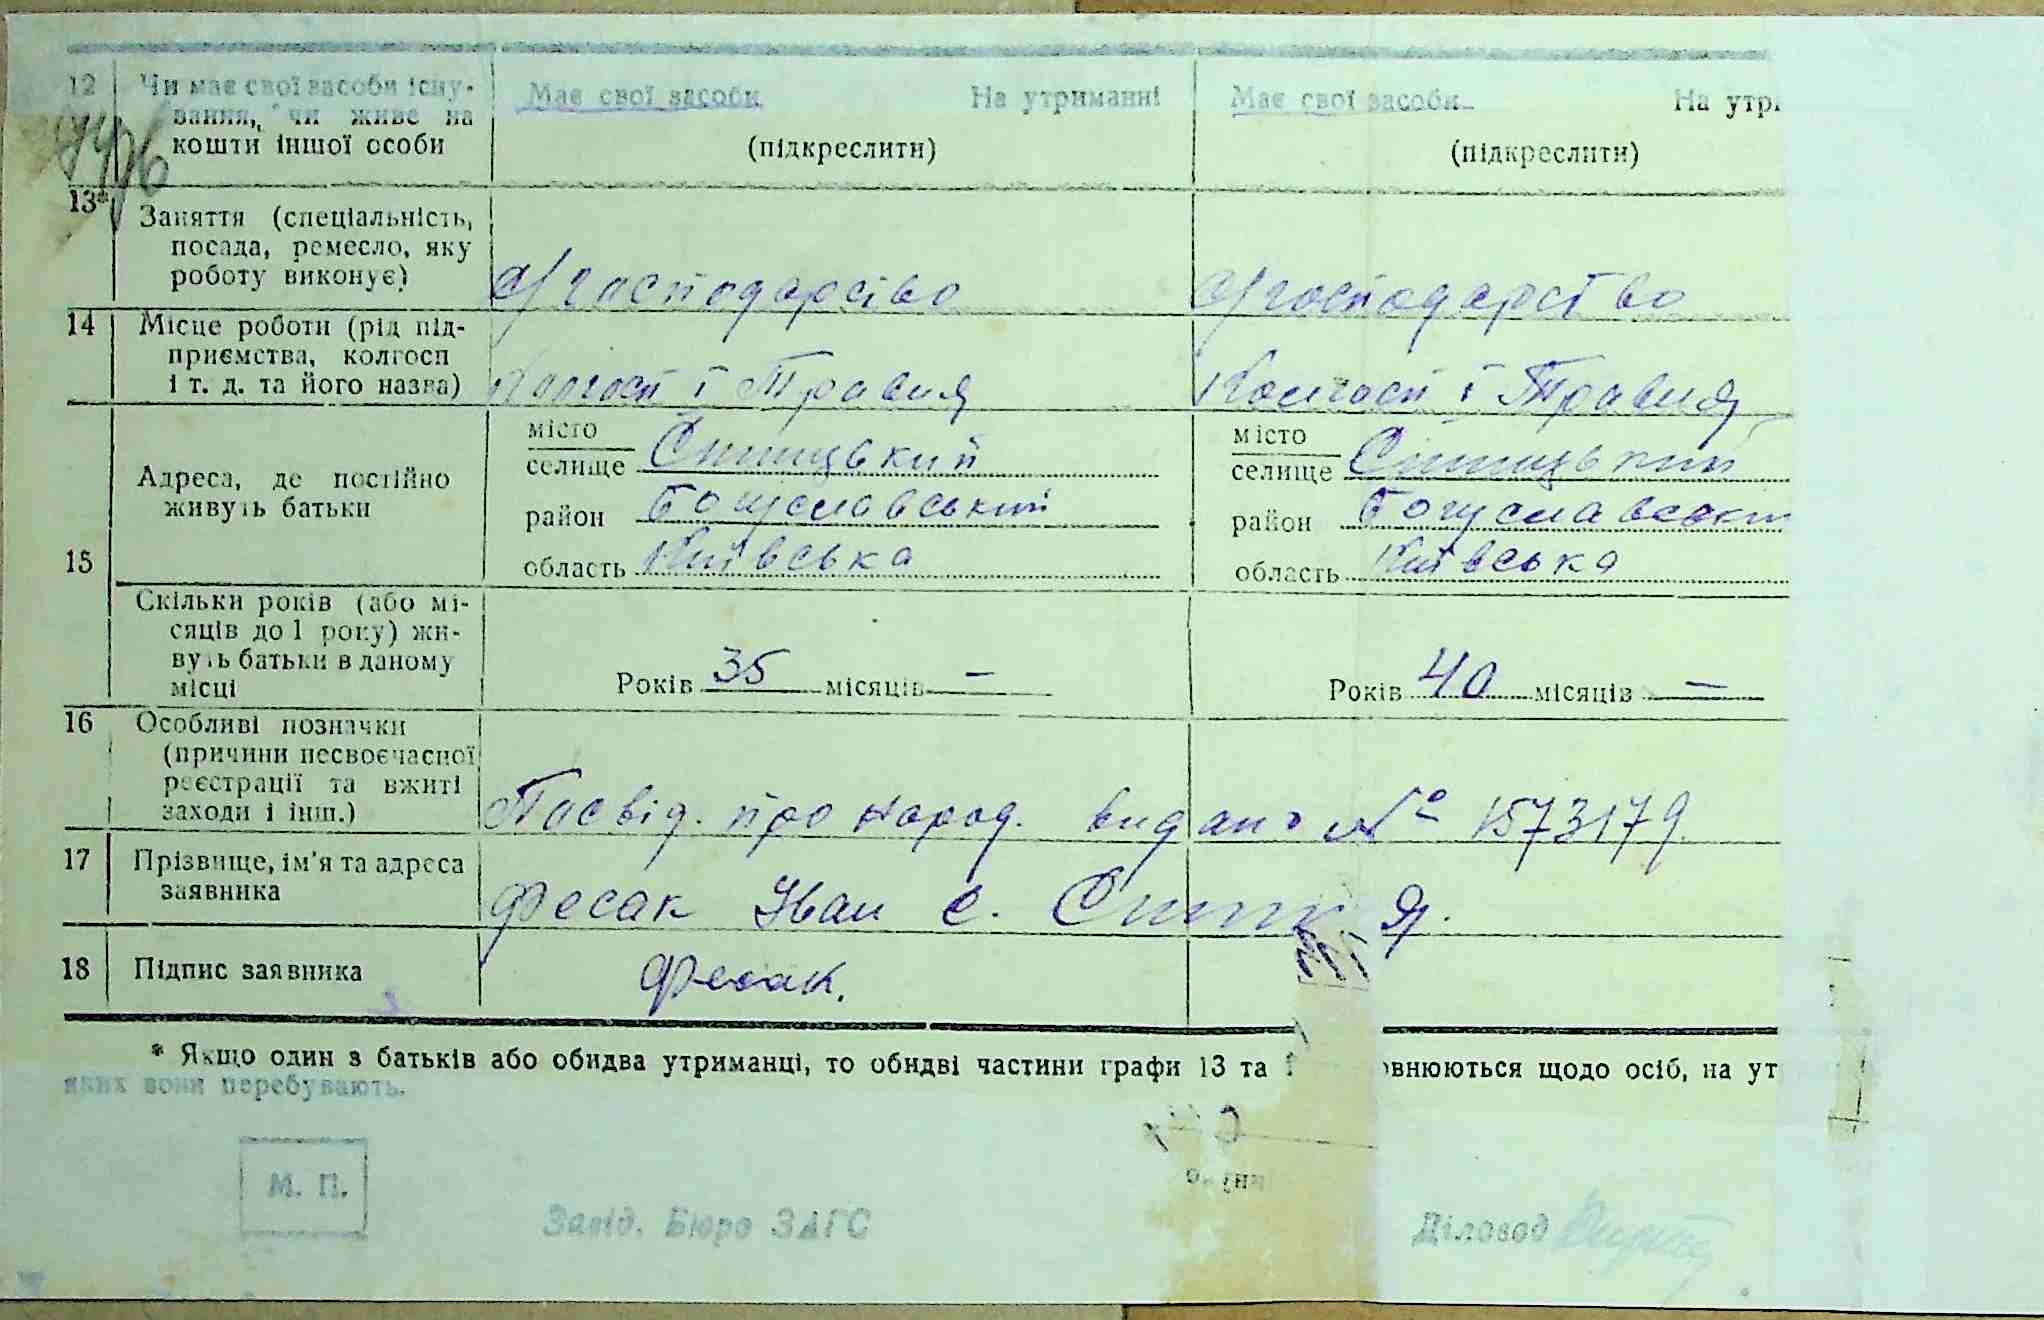 12 Чи має свої засоби існу- Має свої засоби На утриманні Має свої засоби На утри
вання, чи живе на
кошти іншої особи (підкреслити) (підкреслити)
13* Заняття (спеціальність,
посада, ремесло, яку
роботу виконує) с/господарство с/господарство
14 Місце роботи (рід під-
приємства, колгосп
і т. д. та його назва) Колгосп 1 Травня Колгосп 1 Травня
місто місто
селище Синицький селище Синицький
Адреса, де постійно
живуть батьки
район Богуславський район Богуславськи
15 область Київська область Київська
Скільки років (або мі-
сяців до 1 року) жи-
вуть батьки в даному
місці Років 35 місяців – Років 40 місяців –
16 Особливі позначки
(причини несвоєчасної
реєстрації та вжиті
заходи і інш.) Посвід. про народ. видано № 1573179
17 Прізвище, ім'я та адреса
заявника Фесак Іван с.
18 Підпис заявника Фесак.
* Якщо один з батьків або обидва утриманці, то обидві частини графи 13 та овнюються щодо осіб, на ут
яких вони перебувають.
М. П.
Завід. Бюро ЗАГС Діловод